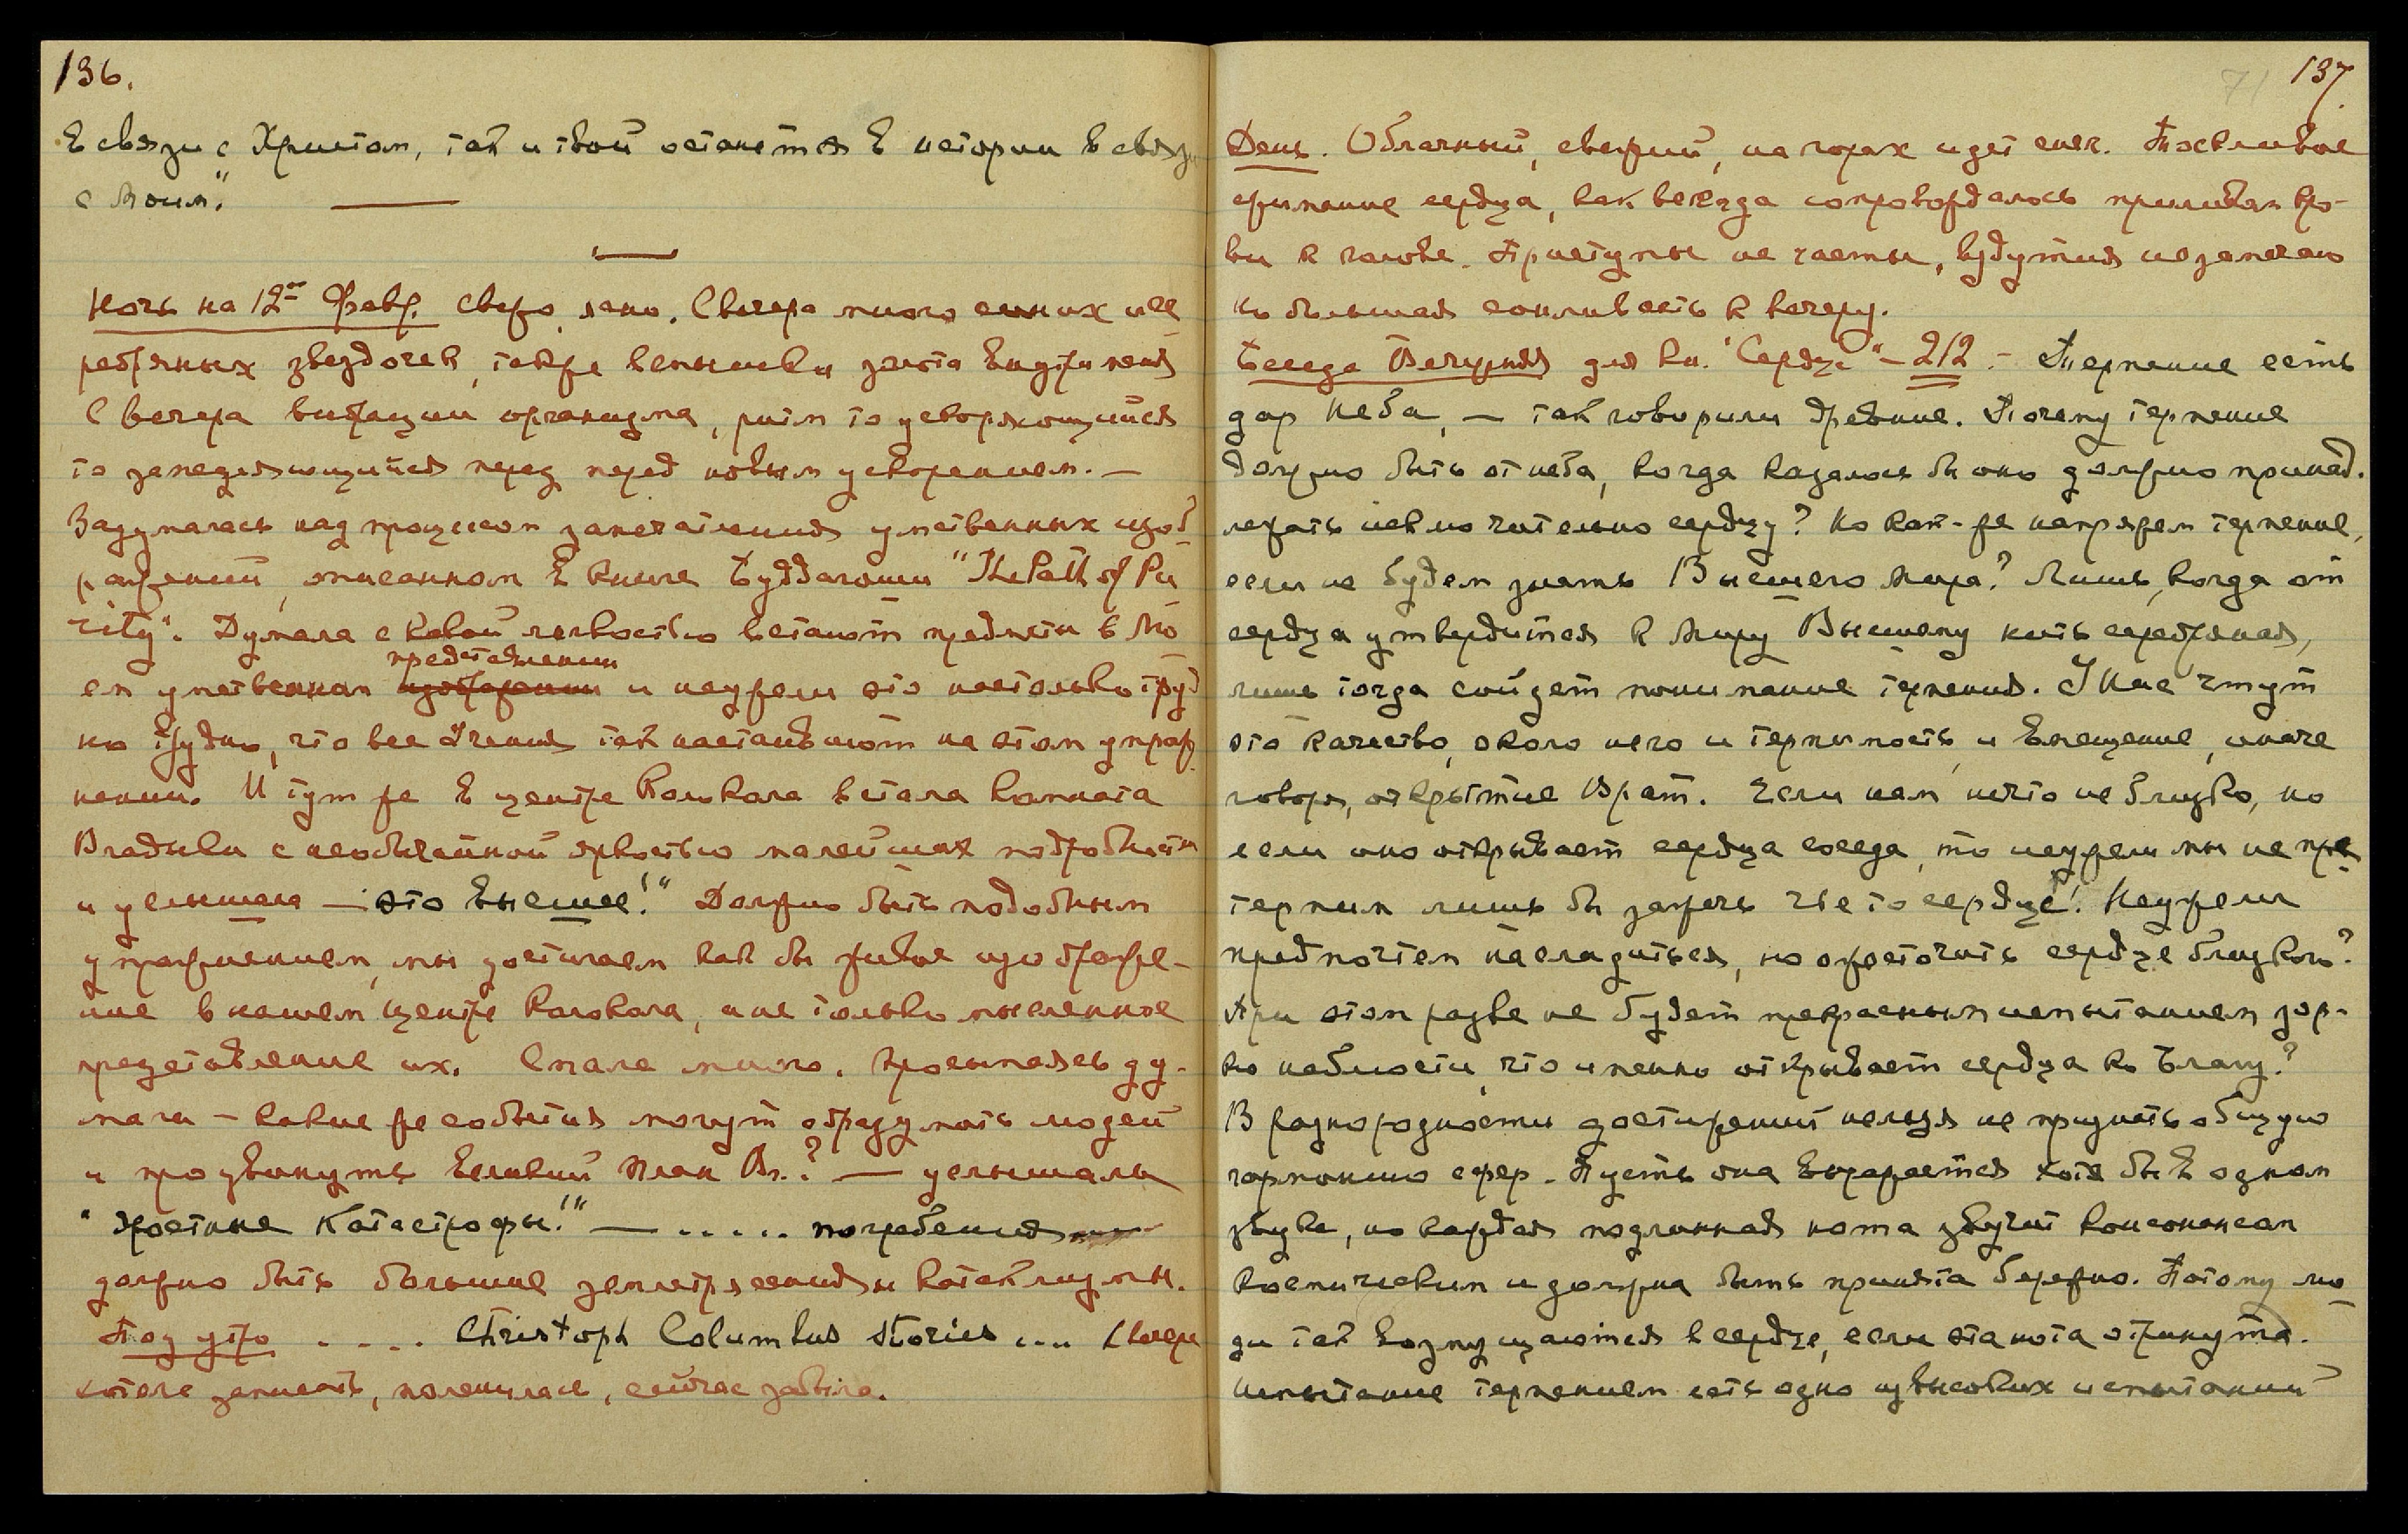 136.
в связи с Христом, так и твой останется в истории в связи
с Моим."
Ночь на 12ое Февр. Свежо, ясно. С вечера много синих и се
ребряных звездочек, также вспышки
С вечера вибрации организма, ритм то ускоряющийся
то замедляющийся перед перед новым ускорением. —
Задумалась над процессом запечатления умственных изоб
ражений, описанном в книге Буддагоши "The Path of Pu
rity". Думала с какой легкостью встают предметы в мо
ем умственном представлении
изображении и неужели это настолько труд
но трудно, что все Учения так настаивают на этом упраж
нении. И тут же в центре Колокола встала комната
Владыки с необычайной яркостью малейших подробностей
и услышала — "это высшее!" Должно быть подобным
упражнением, мы достигаем как бы живое изображе-
ние в нашем центре Колокола, а не только мысленное
представление их. Спала много. Просыпаясь ду-
мала — какие же события могут образумить людей
и продвинуть Великий План Вл.? — услышала
"Яростные Катастрофы!" — ..... погребения
должно быть большие землетрясения и катаклизмы.
Под утро .... Christoph Columbus stories ....
хотела записать, поленилась, сейчас забыла.
71 137.
День. Облачный, свежий, на горах идет снег. Тоскливое
сжимание сердца, как всегда сопровождалось приливом кро-
ви к голове. Приступы не часты,
но большая сонливость к вечеру.
Беседа Вечерняя для кн. "Сердце" — 212 — Терпение есть
дар Неба, — так говорили древние. Почему терпение
должно быть от неба, когда казалось бы оно должно принад.
лежать исключительно сердцу? Но как-же напряжем терпение,
если не будем знать Высшего Мира? Лишь, когда от
сердца утвердится к Миру Высшему нить серебряная,
лишь тогда снийдет понимание терпения. У Нас чтут
это качество, около него и терпимость, и вмещение, иначе
говоря, открытие Врат. Если нам нечто не близко, но
если оно открывает сердца соседа, то неужели мы не пре
терпим лишь бы зажечь чье то сердце! Неужели
предпочтем насладиться, но ожесточить сердце близкого?
При этом разве не будет прекрасным испытанием зор-
ко наблюсти, что именно открывает сердца ко Благу?
В разнородности достижений нельзя не признать общую
гармонию сфер. Пусть она выражается хотя бы в одном
звуке, но каждая подлинная нота звучит консонансом
космическим и должна быть принята бережно. Потому лю
ди так возмущаются в сердце, если эта нота отринута.
Испытание терпением есть одно из высоких испытаний